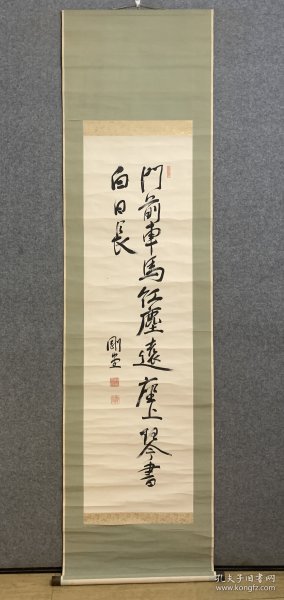 門前車馬紅塵遠座上琴書
白日長
剛堂
孔夫子旧书网
www.kongfz.com